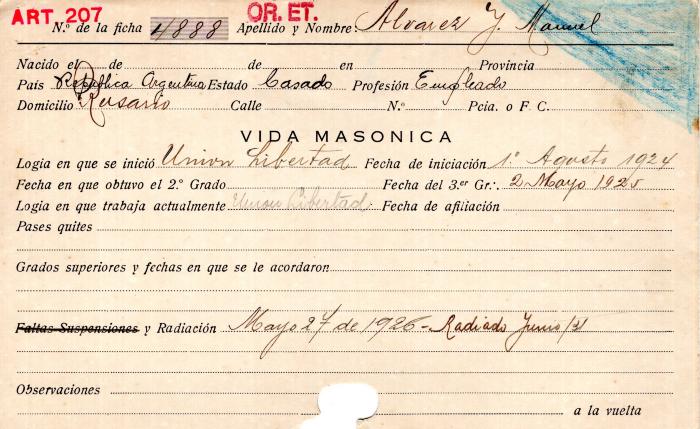 ART 207 OR. ET.
N.º de la ficha 4888 Apellido y Nombre: Alvarez J. Manuel
Nacido el de de en Provincia
País Republica Argentina Estado Casado Profesión Empleado
Domicilio Rosario Calle N.º Pcia. o F C.
VIDA MASONICA
Logia en que se inició Union Libertad Fecha de iniciación 1º Agosto 1924
Fecha en que obtuvo el 2.º Grado Fecha del 3.er Gr.: 2 Mayo 1925
Logia en que trabaja actualmente Union Libertad Fecha de afiliación
Pases quites
Grados superiores y fechas en que se le acordaron
Faltas Suspensiones y Radiación Mayo 27 de 1926 - Radiado Junio/31
Observaciones
a la vuelta